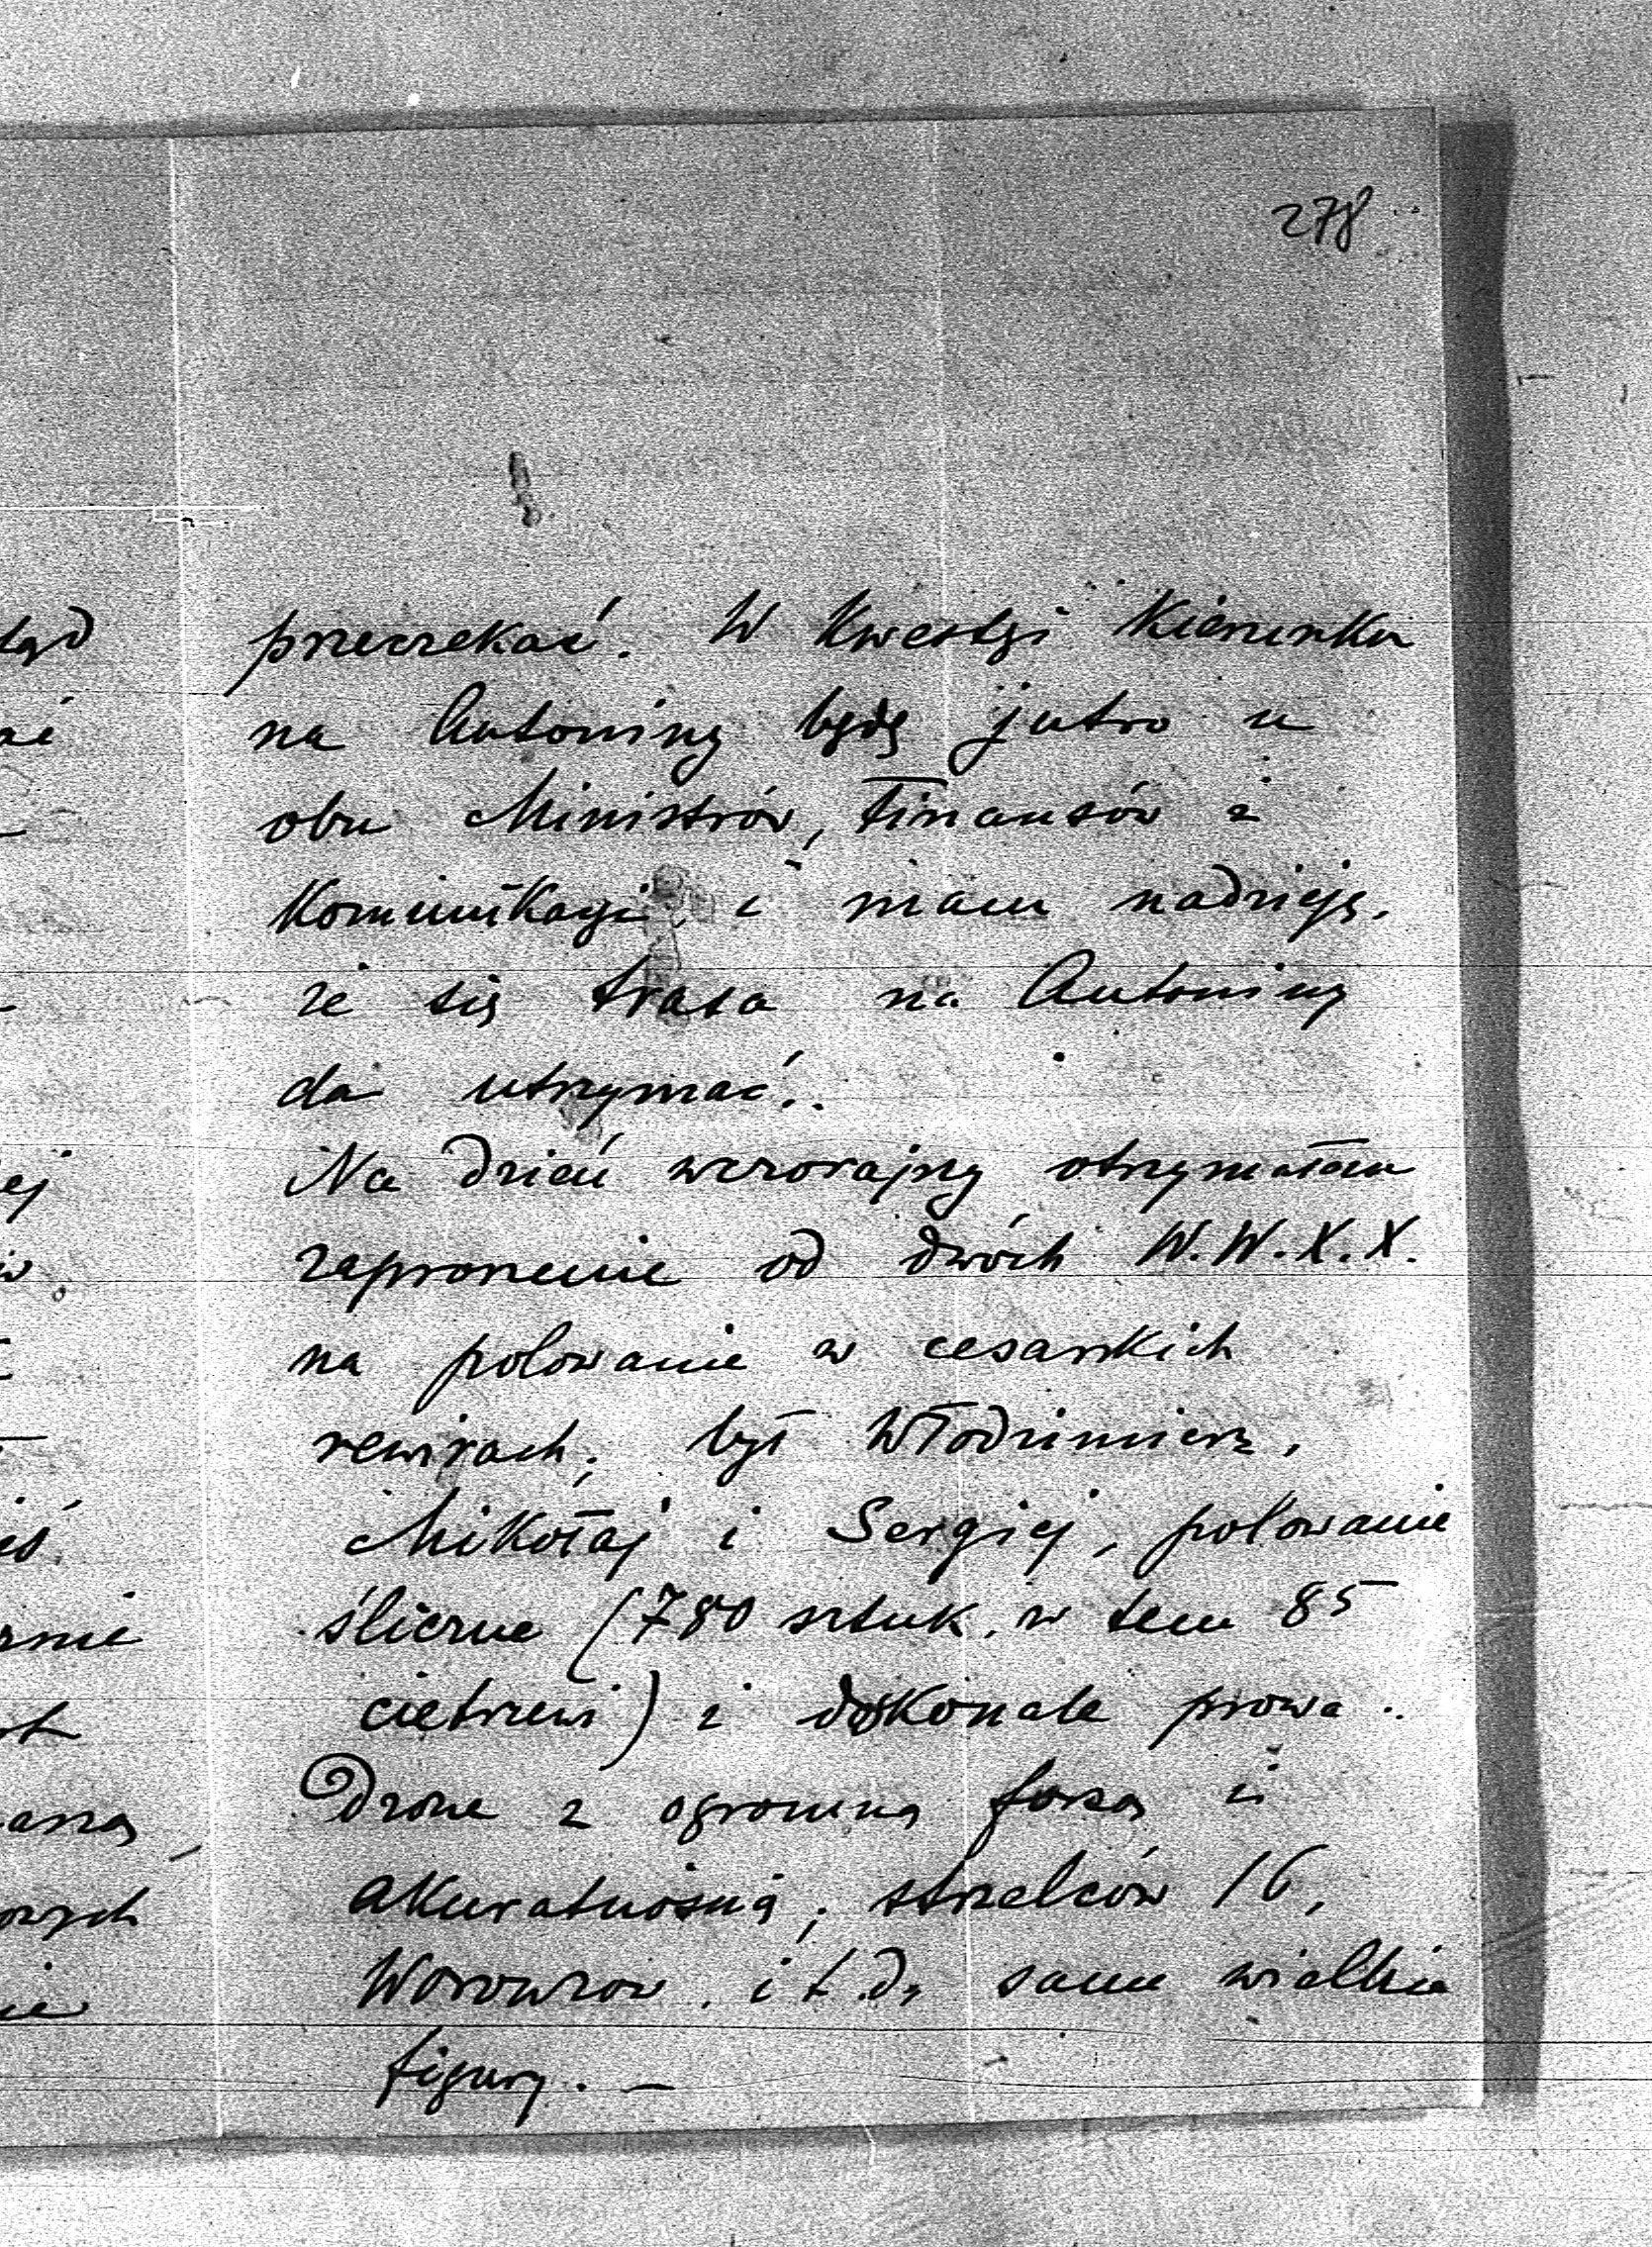 278
przeczekać. W kwestyi kierunku
na Antoniny będę jutro u
obu Ministrów, Finansów i
Komunikacyi i mam nadzieję,
że się trasa na Antoniny
da utrzymać.
Na dzień wczorajszy otrzymałem
zaproszenie od dwóch W.W.X.X.
na polowanie w cesarskich
rewirach; był Włodzimierz,
Mikołaj i Sergiej, polowanie
śliczne (780 sztuk, w tem 85
cietrzewi) i doskonale prowa-
dzone z ogromną forsą i
akuratnością; strzelców 16,
Woroncow i t.d. same wielkie
figury. —